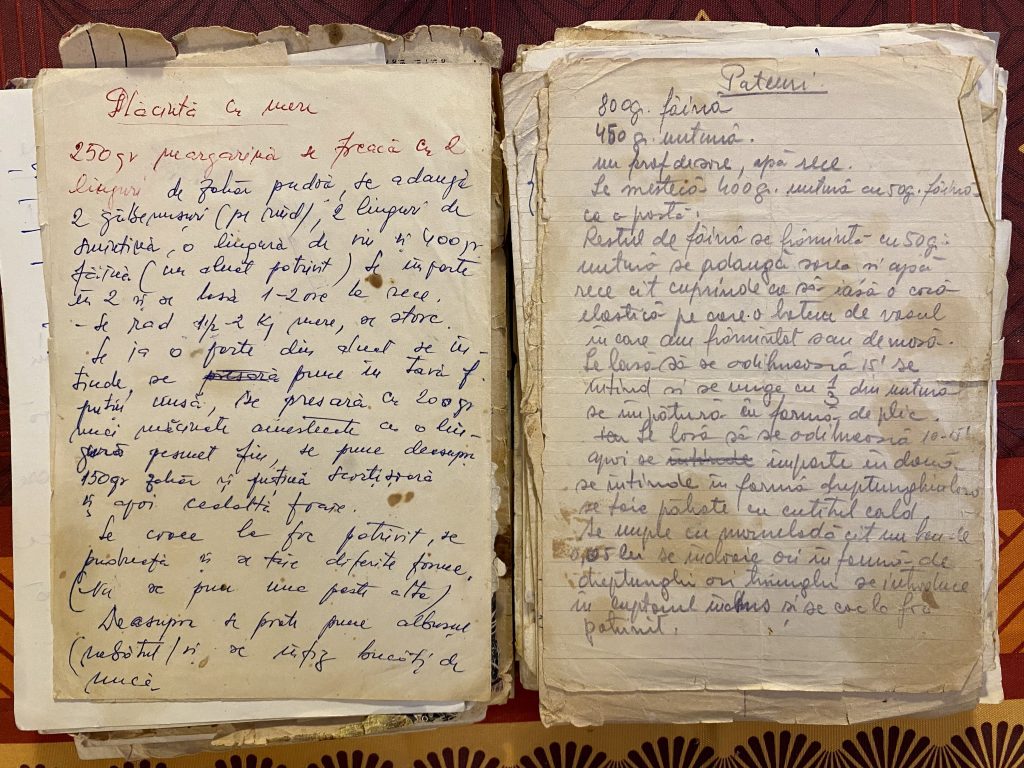 Plăcintă cu mere
250 gr margarină se freacă cu 2
linguri de zahăr pudră, se adaugă
2 gălbenușuri (pe rînd), 2 linguri de
smîntînă, o lingură de vin și 400 gr
făină (un aluat potrivit) Se împarte
în 2 și se lasă 1-2 ore la rece.
- Se rad 1½-2 Kg mere, se storc.
Se ia o parte din aluat se în-
tinde, se presară pune în tavă f.
puțin unsă, se presară cu 200 gr
nuci măcinate amestecate cu o lin-
gură pesmet fin, se pune deasupra
150 gr zahăr și puțină scorțișoară
și apoi cealaltă foaie.
Se coace la foc potrivit, se
pudrează și se taie diferite forme.
(Nu se pun una peste alta)
Deasupra se poate pune albușul
(nebătut) și se înfig bucăți de
nucă
Pateuri
800 g. făină
450 g. untură.
un praf de sare, apă rece.
Se mestecă 400 g. untură cu 50 g. făină
ca o pastă.
Restul de făină se frămîntă cu 50 g.
untură se adaugă sarea si apă
rece cît cuprinde ca să iasă o cocă
elastică pe care o batem de vasul
în care am frămîntat sau de masă.
Se lasă să se odihnească 15' se
întind si se unge cu 1/3 din untură
se împătură în formă de plic
Se lasă să se odihnească 10-15'
apoi se intinde imparte în două
se intinde în formă dreptunghiulară
se taie pătrate cu cutitul cald.
Se umple cu marmeladă cît un ban de
0,05 lei se îndoaie ori în formă de
dreptunghi ori triunghi se introduce
în cuptorul încins si se coc la foc
potrivit.